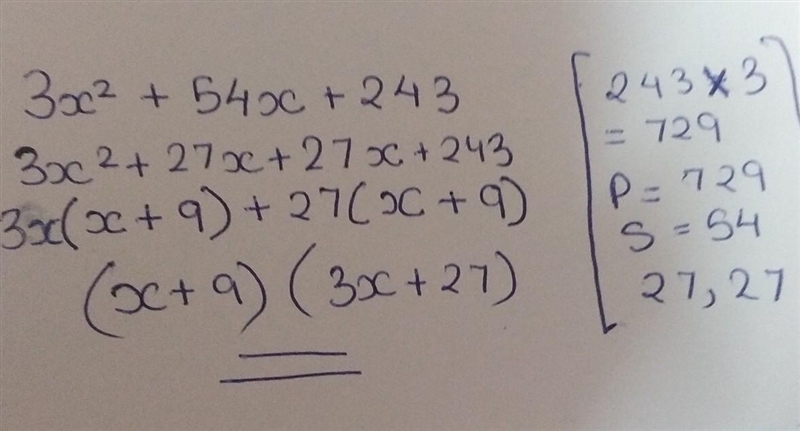 3x² + 54x + 243
3x² + 27x + 27x + 243
3x(x + 9) + 27(x + 9)
(x + 9) (3x + 27)
243 x 3
= 729
P = 729
S = 54
27, 27